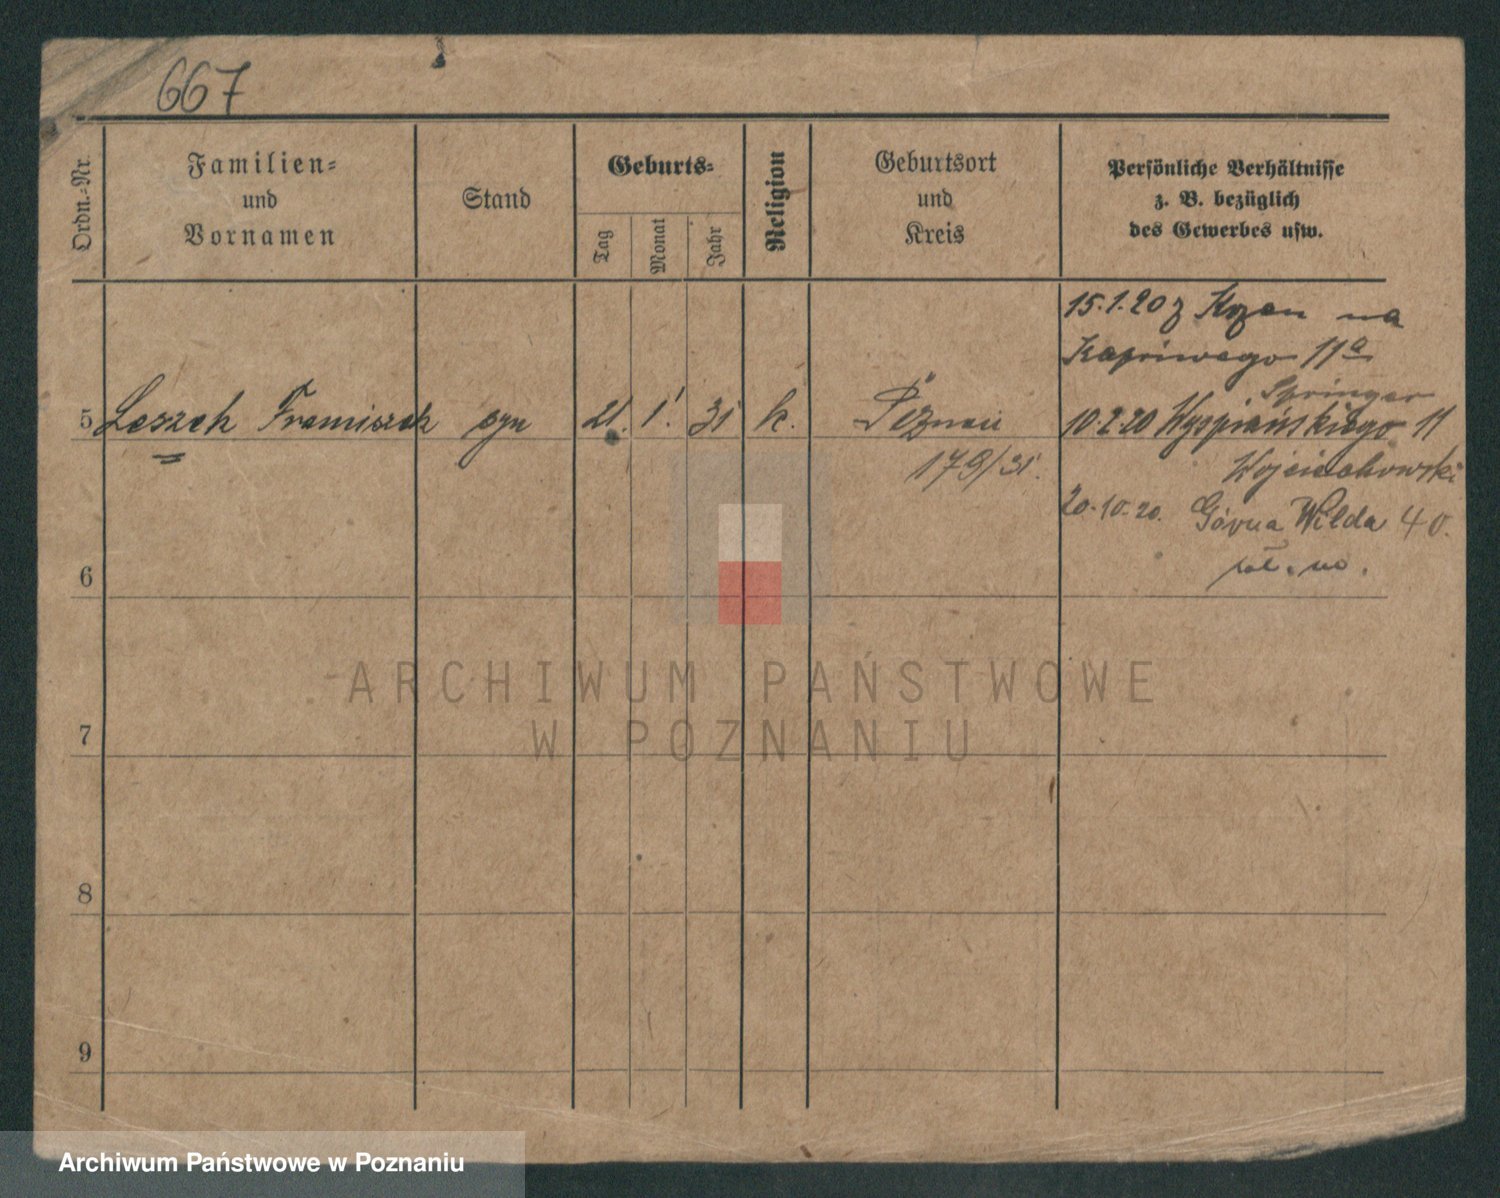 667
Ordn.-Nr.
Familien-
und
Vornamen
Stand
Geburts-
Tag
Monat
Jahr
Religion
Geburtsort
und
Kreis
Persönliche Verhältnisse
z. B. bezüglich
des Gewerbes usw.
15.1.20 z na
11a
Springer
5 Leszek Franciszek syn 21. 1. 31 k. Poznań 10.2.20 Wyspiańskiego 11
179/31.
Wojciechowski
20.10.20. Górna Wilda 40.
6
7
8
9
ARCHIWUM PAŃSTWOWE
W POZNANIU
Archiwum Państwowe w Poznaniu